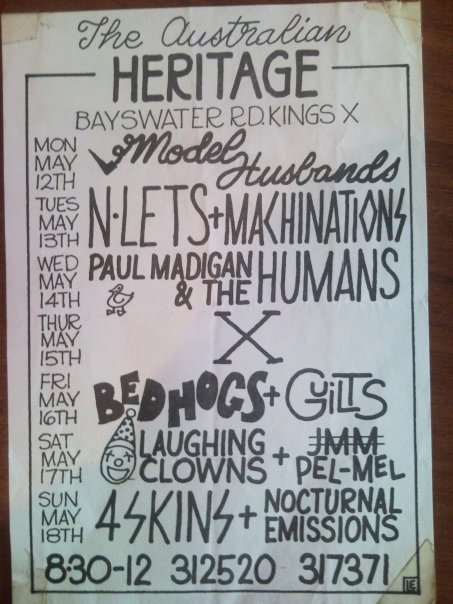 The Australian
HERITAGE
BAYSWATER R.D. KINGS X
MON MAY 12TH
Model Husbands
TUES MAY 13TH
N-LETS + MACHINATIONS
WED MAY 14TH
PAUL MADIGAN & THE HUMANS
THUR MAY 15TH
X
FRI MAY 16TH
BEDHOGS + GUILTS
SAT MAY 17TH
LAUGHING CLOWNS + JMM PEL-MEL
SUN MAY 18TH
4 SKINS + NOCTURNAL EMISSIONS
8:30-12 312520 317371
LE